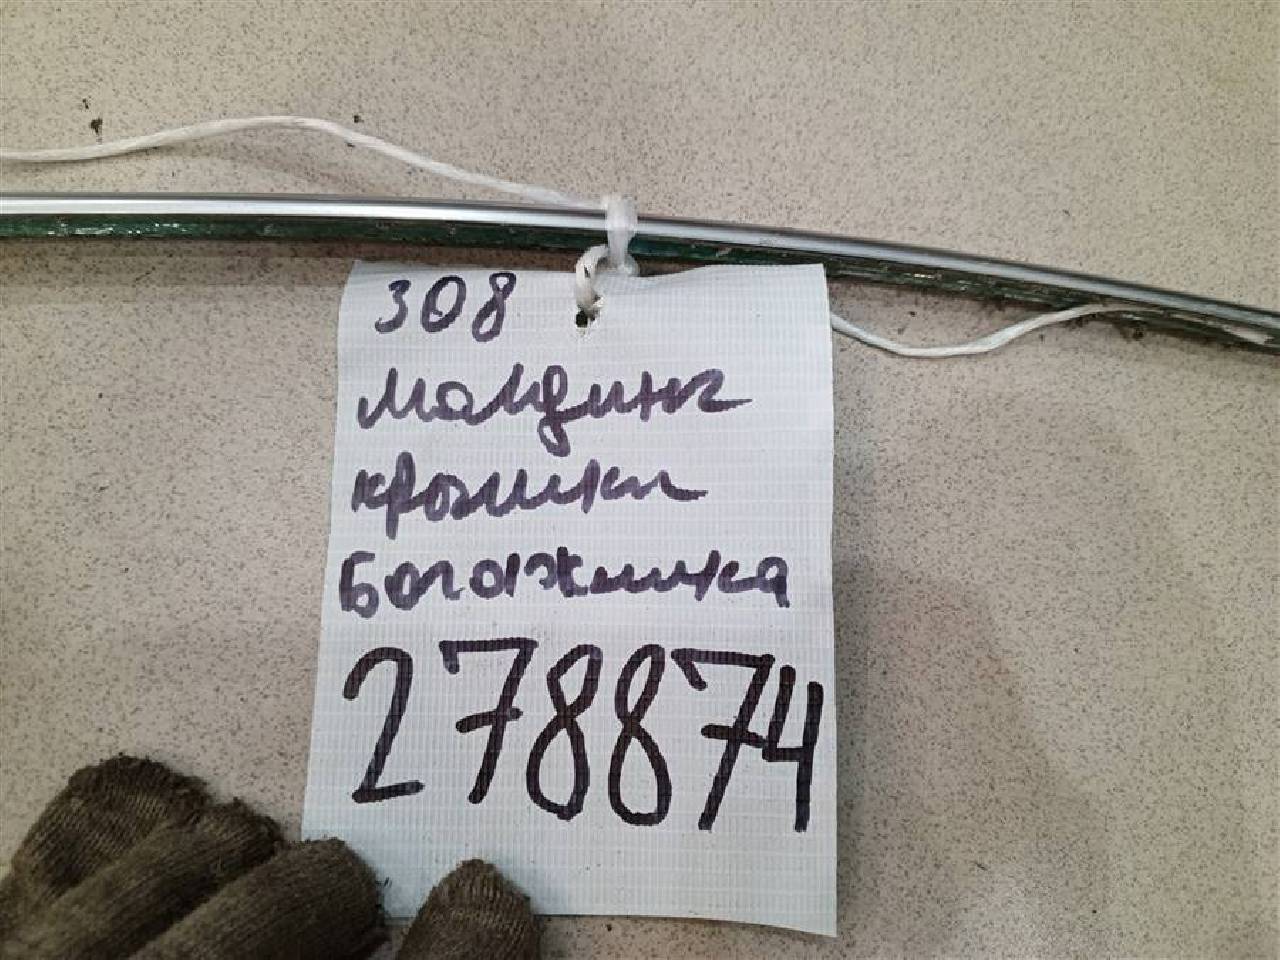 308
Молдинг
крышки
Багажника
278874